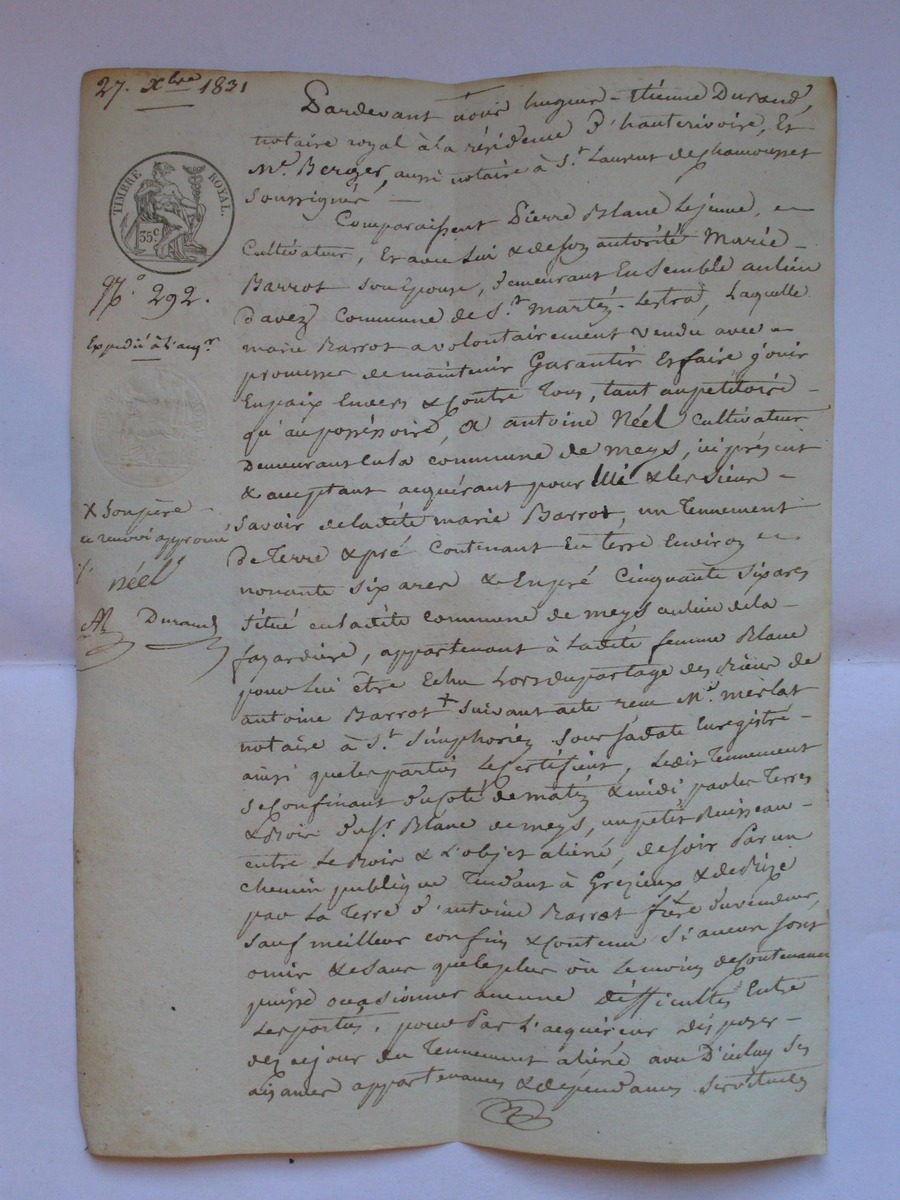 27. Xbre 1831
TIMBRE ROYAL.
35c
No. 292.
Expedié à l'acqr
X Son père
ce renvoi approuvé
néel
Durand
Pardevant nous hugues-Etienne Durand,
notaire royal à la résidence d'hauterivoire, Et
Me. Berger, aussi notaire à St. Laurent de Chamousset
Soussignés —
Comparaissent Pierre Blanc Lejeune,
Cultivateur, Et avec lui & de son autorité Marie
Barrot Son épouse, demeurant Ensemble au lieu
davez Commune de St. Martin-Lestra, Laquelle
marie Barrot a volontairement vendu avec
promesse de maintenir Garantir Et faire jouir
En paix Envers & Contre Tous, tant au petitoire
qu'au possessoire, a antoine Néel Cultivateur
Demeurant en la commune de meys, ici présent
& acceptant acquérant pour lui & les siens
Savoir de ladite marie Barrot, un Tennement
De Terre & pré Contenant En terre Environ
nonante six ares & En pré Cinquante six ares
Situé en ladite commune de meys au lieu de la
fayardière, appartenant à Ladite femme Blanc
pour Lui être Echu Lors du partage des Biens de
antoine Barrot + suivant acte reçu Me. merlat
notaire à St. Simphorien sous sa date Enregistré
ainsi que les parties Le certifient, Ledit Tennement
Se Confinant du Coté de matin & midi par les Terres
& Bois du Sr. Blanc de meys, un petit Ruisseau
entre Le Bois & L'objet aliéné, de soir Par un
Chemin publique Tendant à Grezieux & de Bize
par La Terre d'antoine Barrot frère du vendeur,
Sauf meilleur confins & Contenu Si aucun sont
omis & Sans que le plus ou Le moins de Contenance
puisse occasionner aucune difficultés Entre
Les parties, pour Par L'acquéreur disposer
des ce jour du Tennement aliéné avec D'icelui Ses
aisances appartenances & dépendances Servitudes